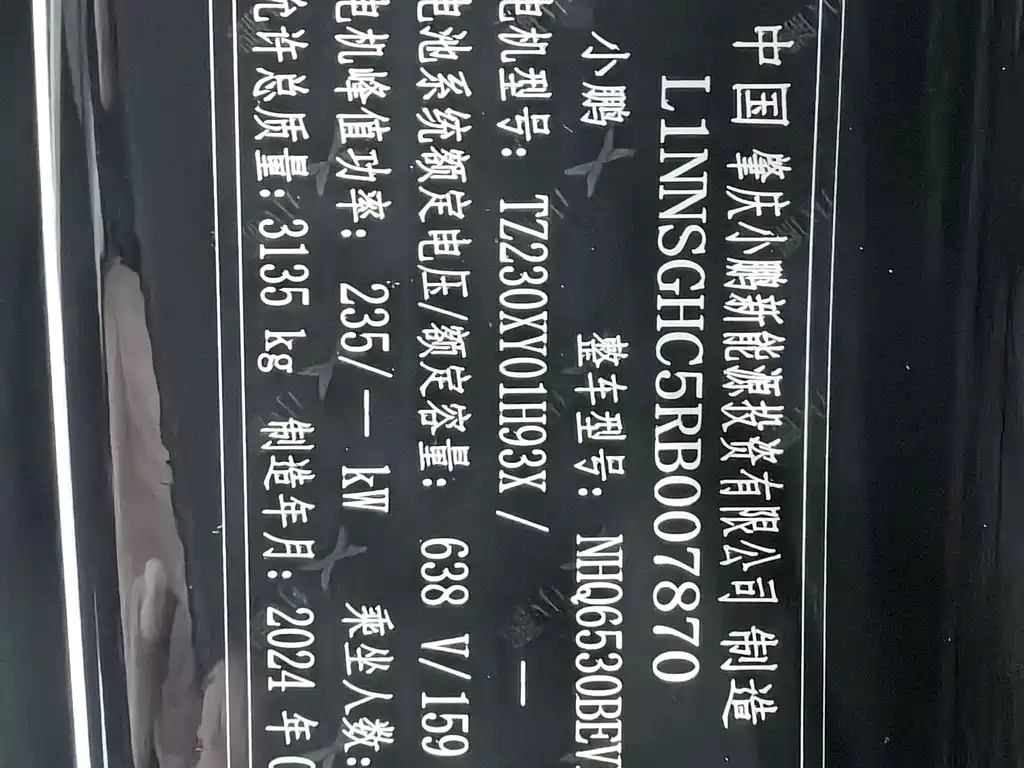 中国 肇庆小鹏新能源投资有限公司 制造
L1NNSGHC5RB007870
小鹏 整车型号: NHQ6530BEV
电机型号: TZ230XY01H93X / —
电池系统额定电压/额定容量: 638 V/159
电机峰值功率: 235/ — kW 乘坐人数:
允许总质量: 3135 kg 制造年月: 2024 年